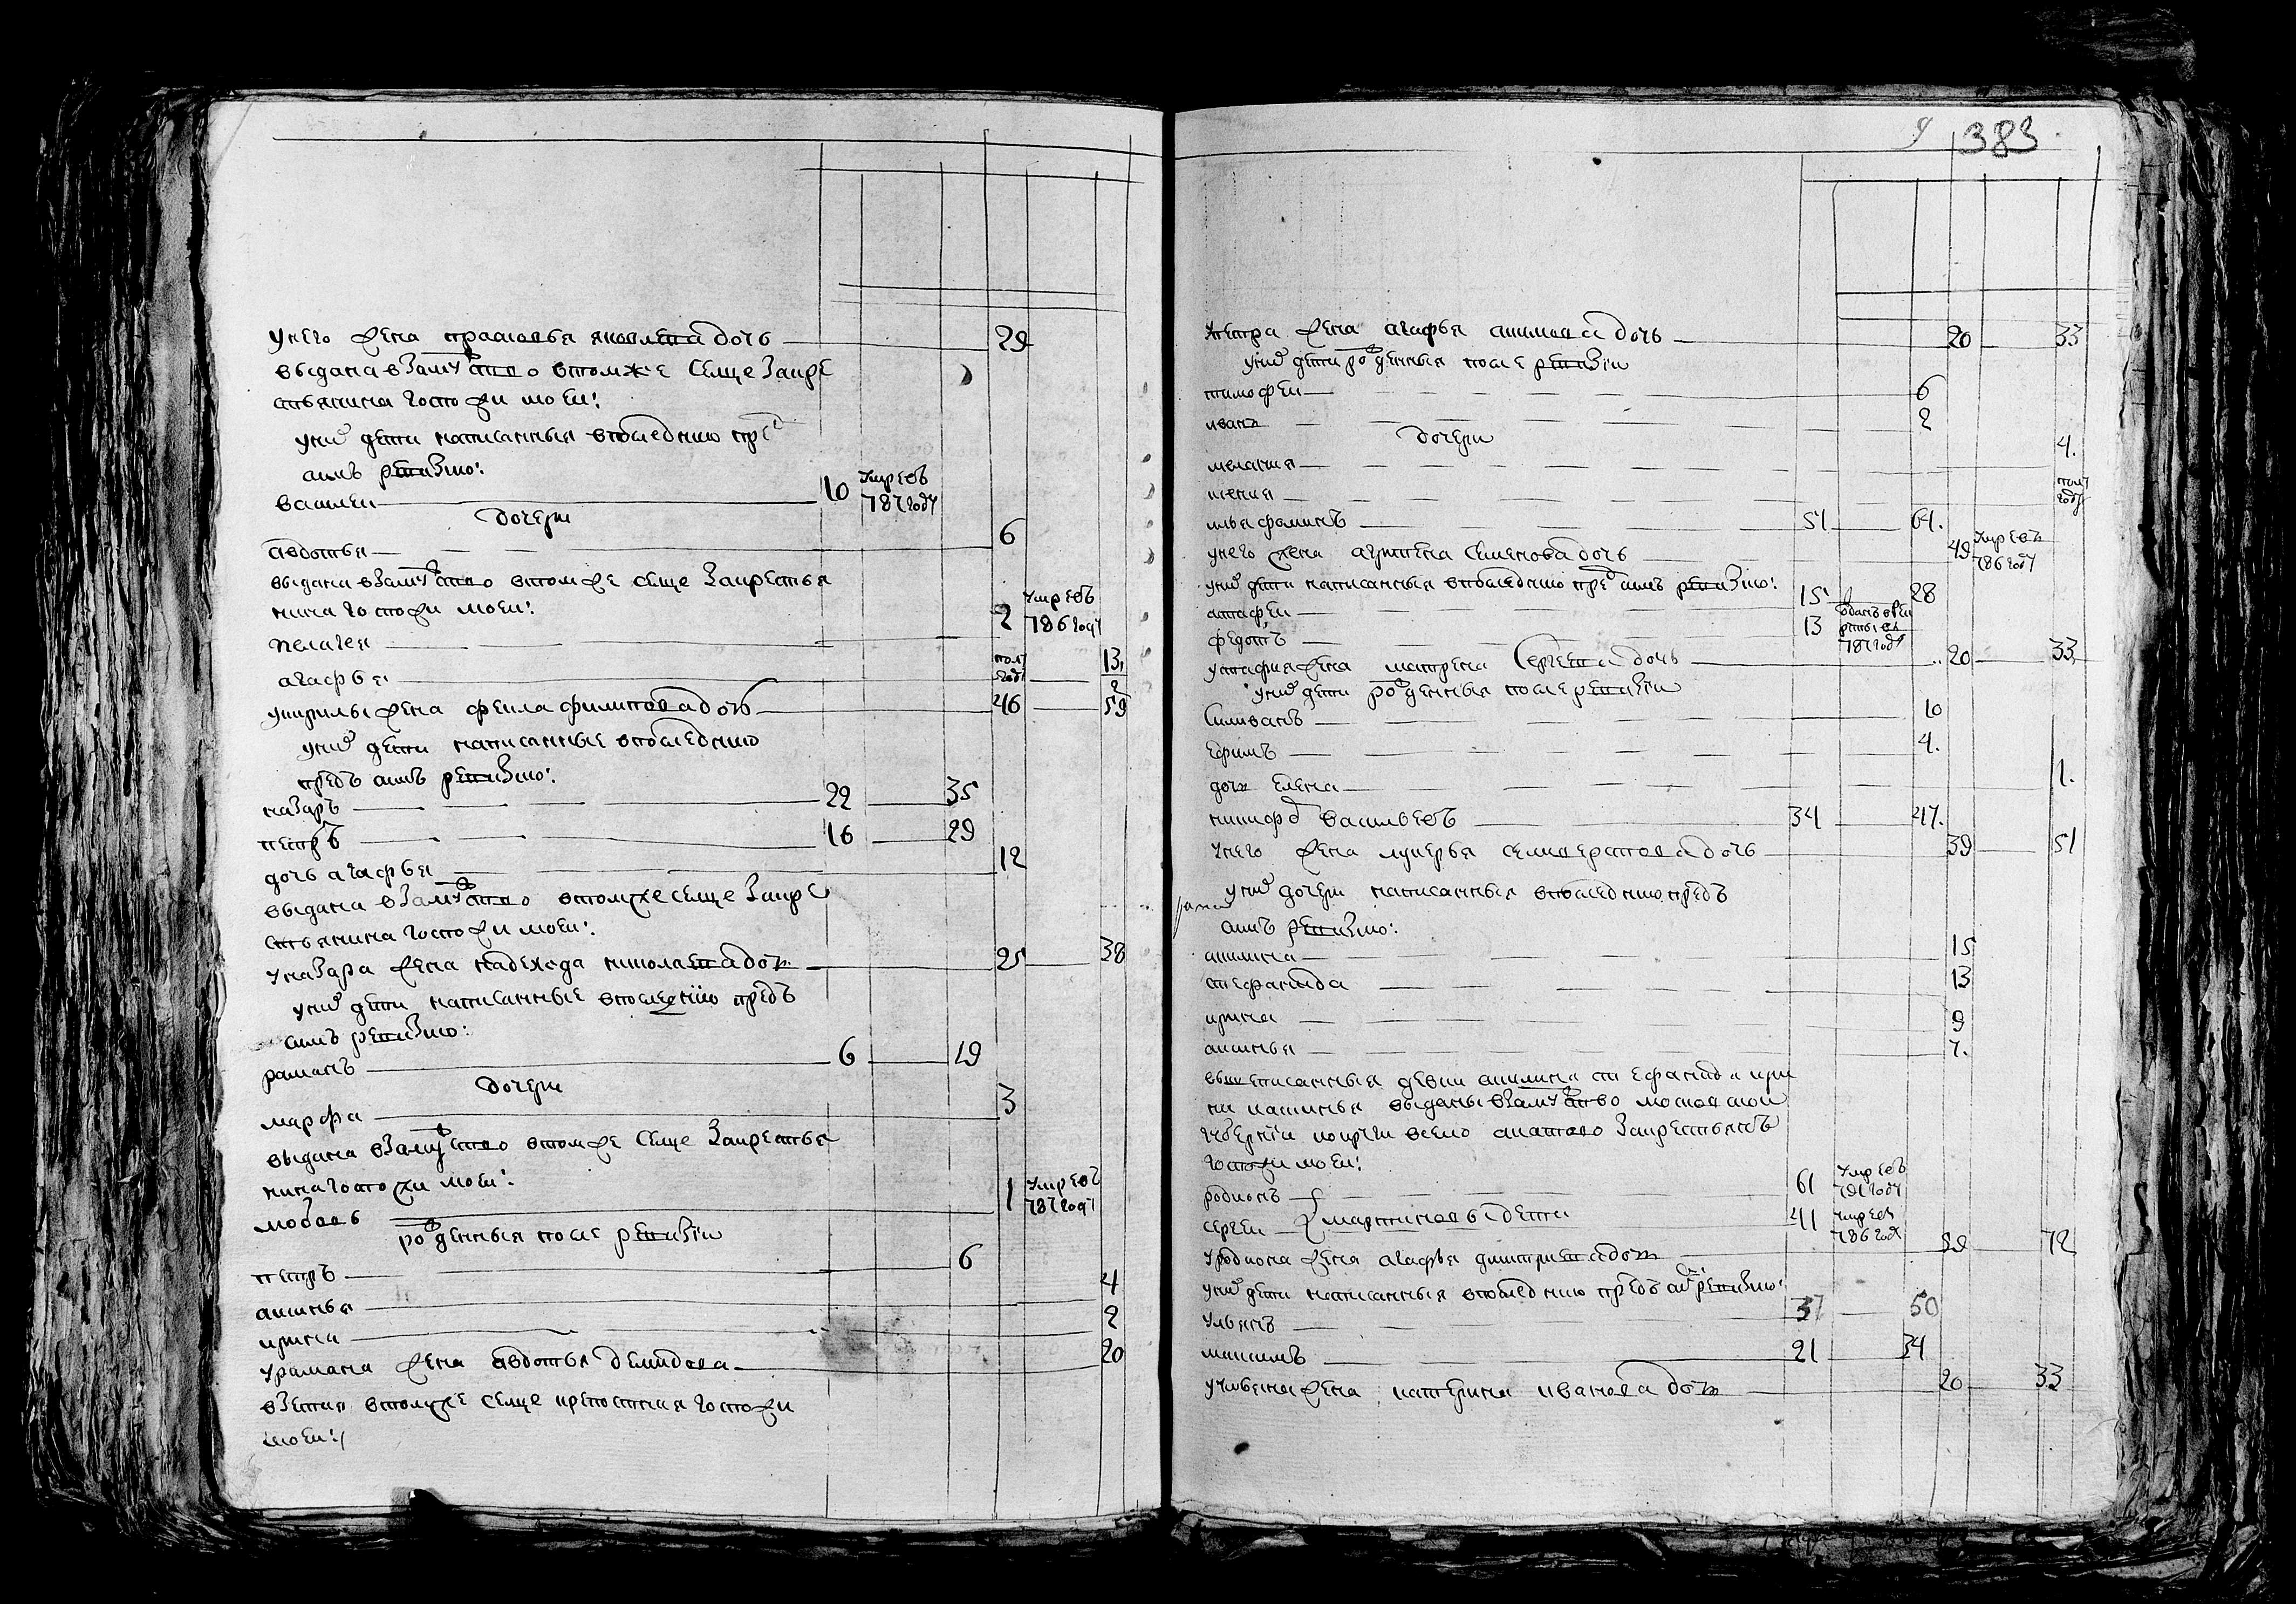 у него жена прасковья яковлева дочь 29
выдана в замужство в том же селце за кре
стьянина госпожи моеи:
у них дети написанныя в последнюю пре
сию ревизию:
василеи 10 умре въ 787 году
дочери
авдотья 6
выдана в замужство в том же селце за крестья
нина госпожи моеи:
пелагея 2 умре въ 786 году
агафья полу году 13
жена фекла филипова дочь 46 59
у них дети написанные в последнюю
предъ сию ревизию:
назаръ 22 35
петръ 16 29
дочь агафья 12
выдана в замужство в том же селце за кре
стьянина госпожи моеи:
у назара жена надежда николаева дочь 25 38
у них дети написанные в последнюю предъ
сию ревизию:
раманъ 6 19
дочери
марфа 3
выдана в замужство в том же селце за крестья
нина госпожи моеи:
любовь 1 умре въ 787 году
рожденныя после ревизии
петръ 6
аксинья 4
ирина 2
у рамана жена авдотья демидова 20
взетая в том же селце крепостная госпожи
моеи:
383
у петра жена агафья акимова дочь 20 33
у них дети рожденныя после ревизии
тимофеи 6
иванъ 2
дочери
меланья 4.
полу году
илья фоминъ 51 64.
у него жена агрипена семенова дочь 49 умре въ 786 году
у них дети написанныя в последнюю пред сию ревизию:
астафеи 15 28
федотъ 13 отданъ в рекруты въ 787 году
у стафия жена матрена сергеева дочь 20 33
у них дети рожденныя после ревизии
силиванъ 10
ефимъ 4.
дочь елена 1.
никифоръ васильевъ 34 47.
у него жена лукерья селиверстова дочь 39 51
у них дочери написанныя в последнюю предъ
сию ревизию:
акилина 15
стефанида 13
ирина 9
аксинья 7.
вышеписанныя девки акилина стефанида ири
на и аксинья выданы в замужство московской
губернии за крестьянъ
госпожи моеи:
родионъ 61 умре въ 791 году
сергеи мартиновы дети 41 умре въ 786 году
у родиона жена агафья дмитриева дочь 59 72
у них дети написанныя в последнюю предъ сию ревизию:
ульянъ 37 50
максимъ 21 34
у ульяна жена катерина иванова дочь 20 33